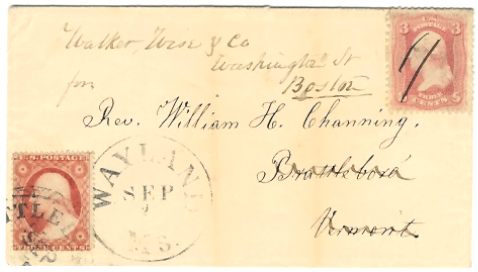 Walker, Wise & Co
Washington St
for Boston
Rev. William H. Channing,
Brattleboro
Vermont
3 U.S. POSTAGE 3
THREE
CENTS
U.S. POSTAGE
THREE CENTS
WAYLAND
SEP
MS.
TTLEB
SEP